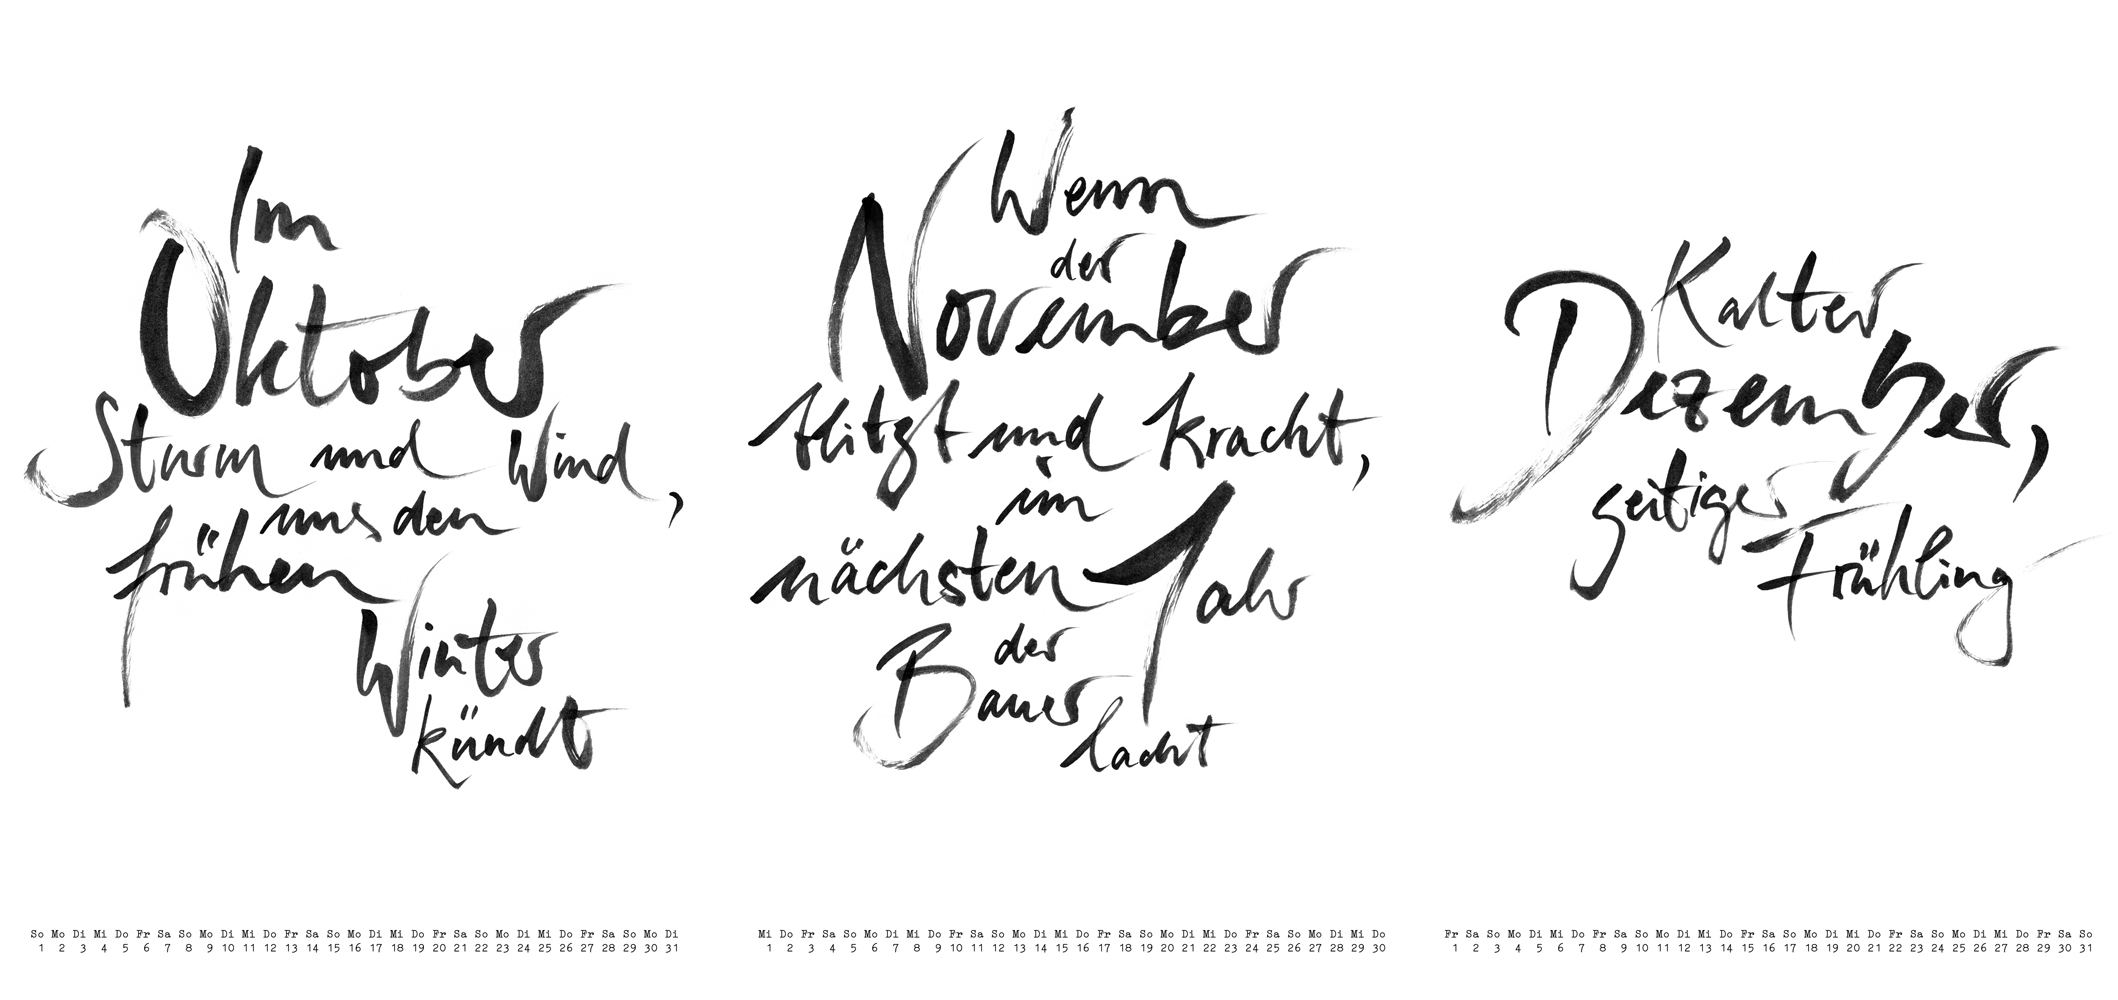 Im
Oktober
Sturm und Wind,
uns den
frühen
Winter
kündt
So Mo Di Mi Do Fr Sa So Mo Di Mi Do Fr Sa So Mo Di Mi Do Fr Sa So Mo Di Mi Do Fr Sa So Mo Di
1 2 3 4 5 6 7 8 9 10 11 12 13 14 15 16 17 18 19 20 21 22 23 24 25 26 27 28 29 30 31
Wenn
der
November
blitzt und kracht,
im
nächsten Jahr
der
Bauer
lacht
Mi Do Fr Sa So Mo Di Mi Do Fr Sa So Mo Di Mi Do Fr Sa So Mo Di Mi Do Fr Sa So Mo Di Mi Do
1 2 3 4 5 6 7 8 9 10 11 12 13 14 15 16 17 18 19 20 21 22 23 24 25 26 27 28 29 30
Kalter
Dezember,
zeitiger
Frühling
Fr Sa So Mo Di Mi Do Fr Sa So Mo Di Mi Do Fr Sa So Mo Di Mi Do Fr Sa So Mo Di Mi Do Fr Sa So
1 2 3 4 5 6 7 8 9 10 11 12 13 14 15 16 17 18 19 20 21 22 23 24 25 26 27 28 29 30 31